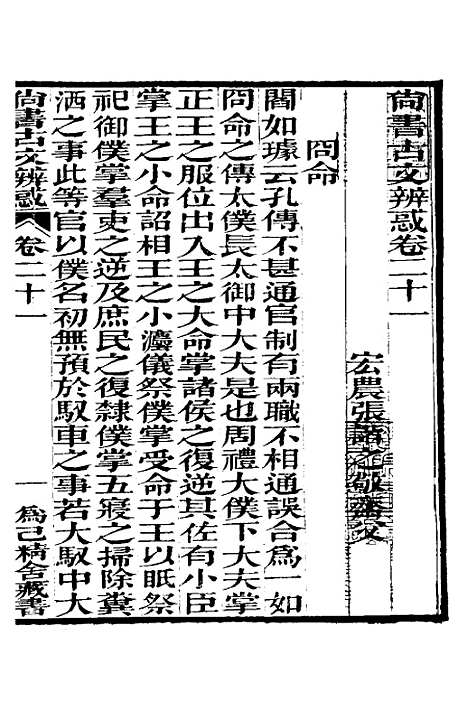 尙書古文辨惑卷二十一
宏農張諧之敬齋父
冏命
閻如璩云孔傳不甚通官制有兩職不相通誤合爲一如
冏命之傳太僕長太御中大夫是也周禮大僕下大夫掌
正王之服位出入王之大命掌諸侯之復逆其佐有小臣
掌王之小命詔相王之小灋儀祭僕掌受命于王以眡祭
祀御僕掌羣吏之逆及庶民之復隸僕掌五寢之掃除糞
洒之事此等官以僕名初無預於馭車之事若大馭中大
尙書古文辨惑 卷二十一 一 爲己精舍藏書